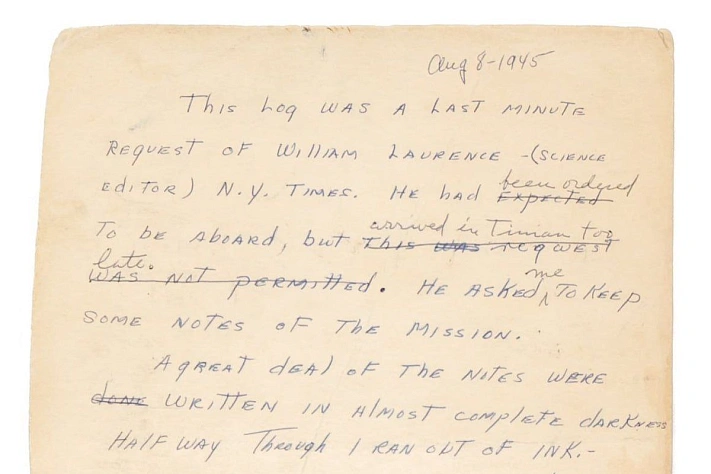 Aug 8-1945
This Log was a Last minute
Request of William Laurence - (science
editor) N.Y. Times. He had Expected been ordered
To be aboard, but This was request arrived in Tinian too
was not permitted. late. He asked me To Keep
some notes of the Mission.
A great deal of the notes were
done written in almost complete darkness
Half way Through I ran out of ink.-